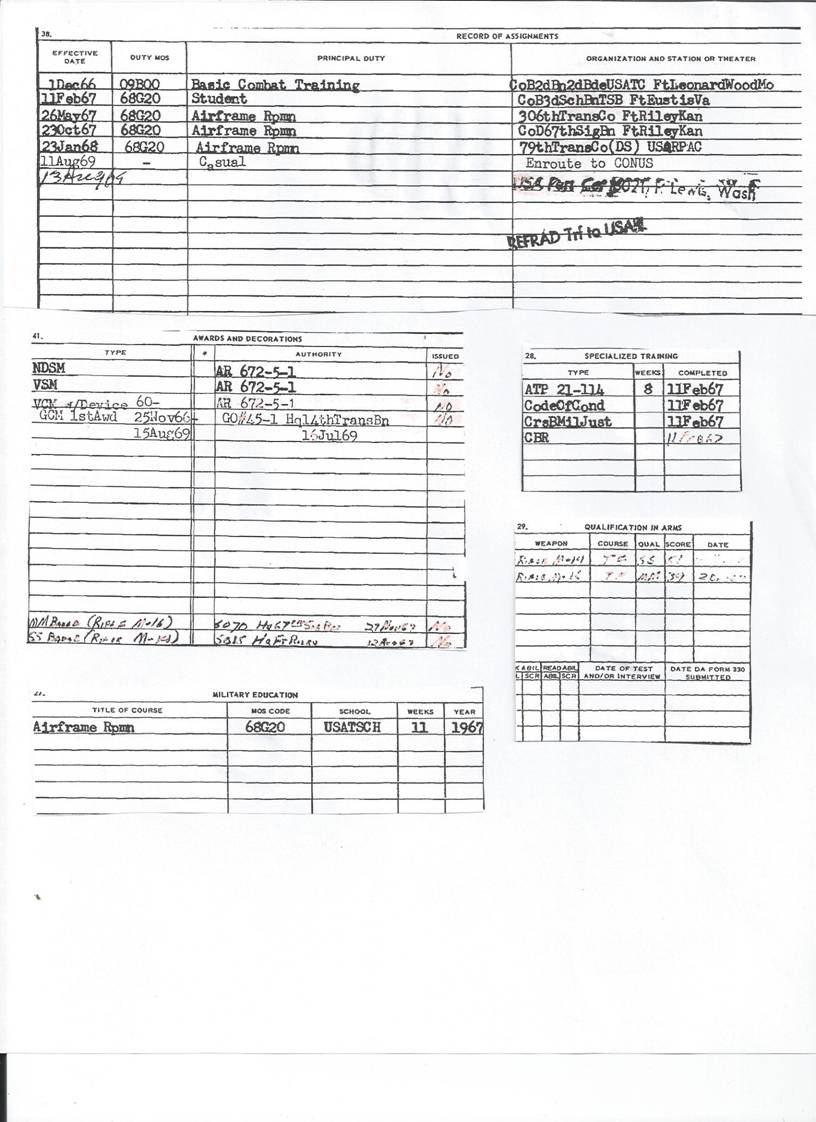 38. RECORD OF ASSIGNMENTS
EFFECTIVE DATE DUTY MOS PRINCIPAL DUTY ORGANIZATION AND STATION OR THEATER
1Dec66 09B00 Basic Combat Training CoB2dBn2dBdeUSATC FtLeonardWoodMo
11Feb67 68G20 Student CoB3dSchBnTSB FtEustisVa
26May67 68G20 Airframe Rpmn 306thTransCo FtRileyKan
23Oct67 68G20 Airframe Rpmn CoD67thSigBn FtRileyKan
23Jan68 68G20 Airframe Rpmn 79thTransCo(DS) USARPAC
11Aug69 - Casual Enroute to CONUS
13Aug69 Ft Lewis, Wash
REFRAD Trf to USAR
41. AWARDS AND DECORATIONS
TYPE * AUTHORITY ISSUED
NDSM AR 672-5-1 No
VSM AR 672-5-1 No
VCM w/Device 60- AR 672-5-1 No
GCM 1stAwd 25Nov66- GO#45-1 Hq14thTransBn No
15Aug69 16Jul69
(Rifle M-16) No
SS Badge (Rifle M-14) No
28. SPECIALIZED TRAINING
TYPE WEEKS COMPLETED
ATP 21-114 8 11Feb67
CodeOfCond 11Feb67
CrsBMilJust 11Feb67
CBR 11Feb67
29. QUALIFICATION IN ARMS
WEAPON COURSE QUAL SCORE DATE
Rifle M-14 SS
Rifle M-16 39
ABIL READ ABIL DATE OF TEST DATE DA FORM 330
L SCR ABIL SCR AND/OR INTERVIEW SUBMITTED
MILITARY EDUCATION
TITLE OF COURSE MOS CODE SCHOOL WEEKS YEAR
Airframe Rpmn 68G20 USATSCH 11 1967